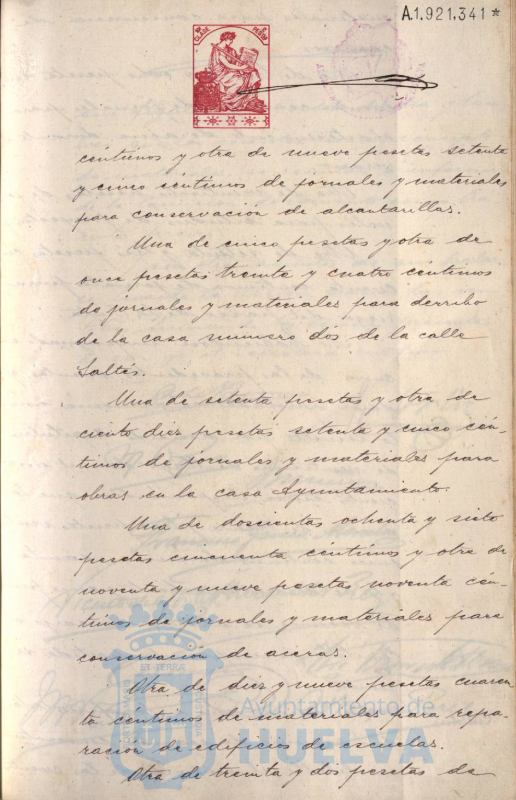 A.1.921.341*
CLASE
céntimos y otra de nueve pesetas setenta
y cinco céntimos de jornales y materiales
para conservación de alcantarillas.
Una de cinco pesetas y otra de
once pesetas treinta y cuatro céntimos
de jornales y materiales para derribo
de la casa número dos de la calle
Saltés.
Una de setenta pesetas y otra de
ciento diez pesetas setenta y cinco cén-
timos de jornales y materiales para
obras en la casa Ayuntamiento.
Una de doscientas ochenta y siete
pesetas cincuenta céntimos y otra de
noventa y nueve pesetas noventa cén-
timos de jornales y materiales para
conservación de aceras.
Otra de diez y nueve pesetas cuaren
ta céntimos de materiales para repa-
ración de edificios de escuelas.
Otra de treinta y dos pesetas de
Ayuntamiento de
HUELVA